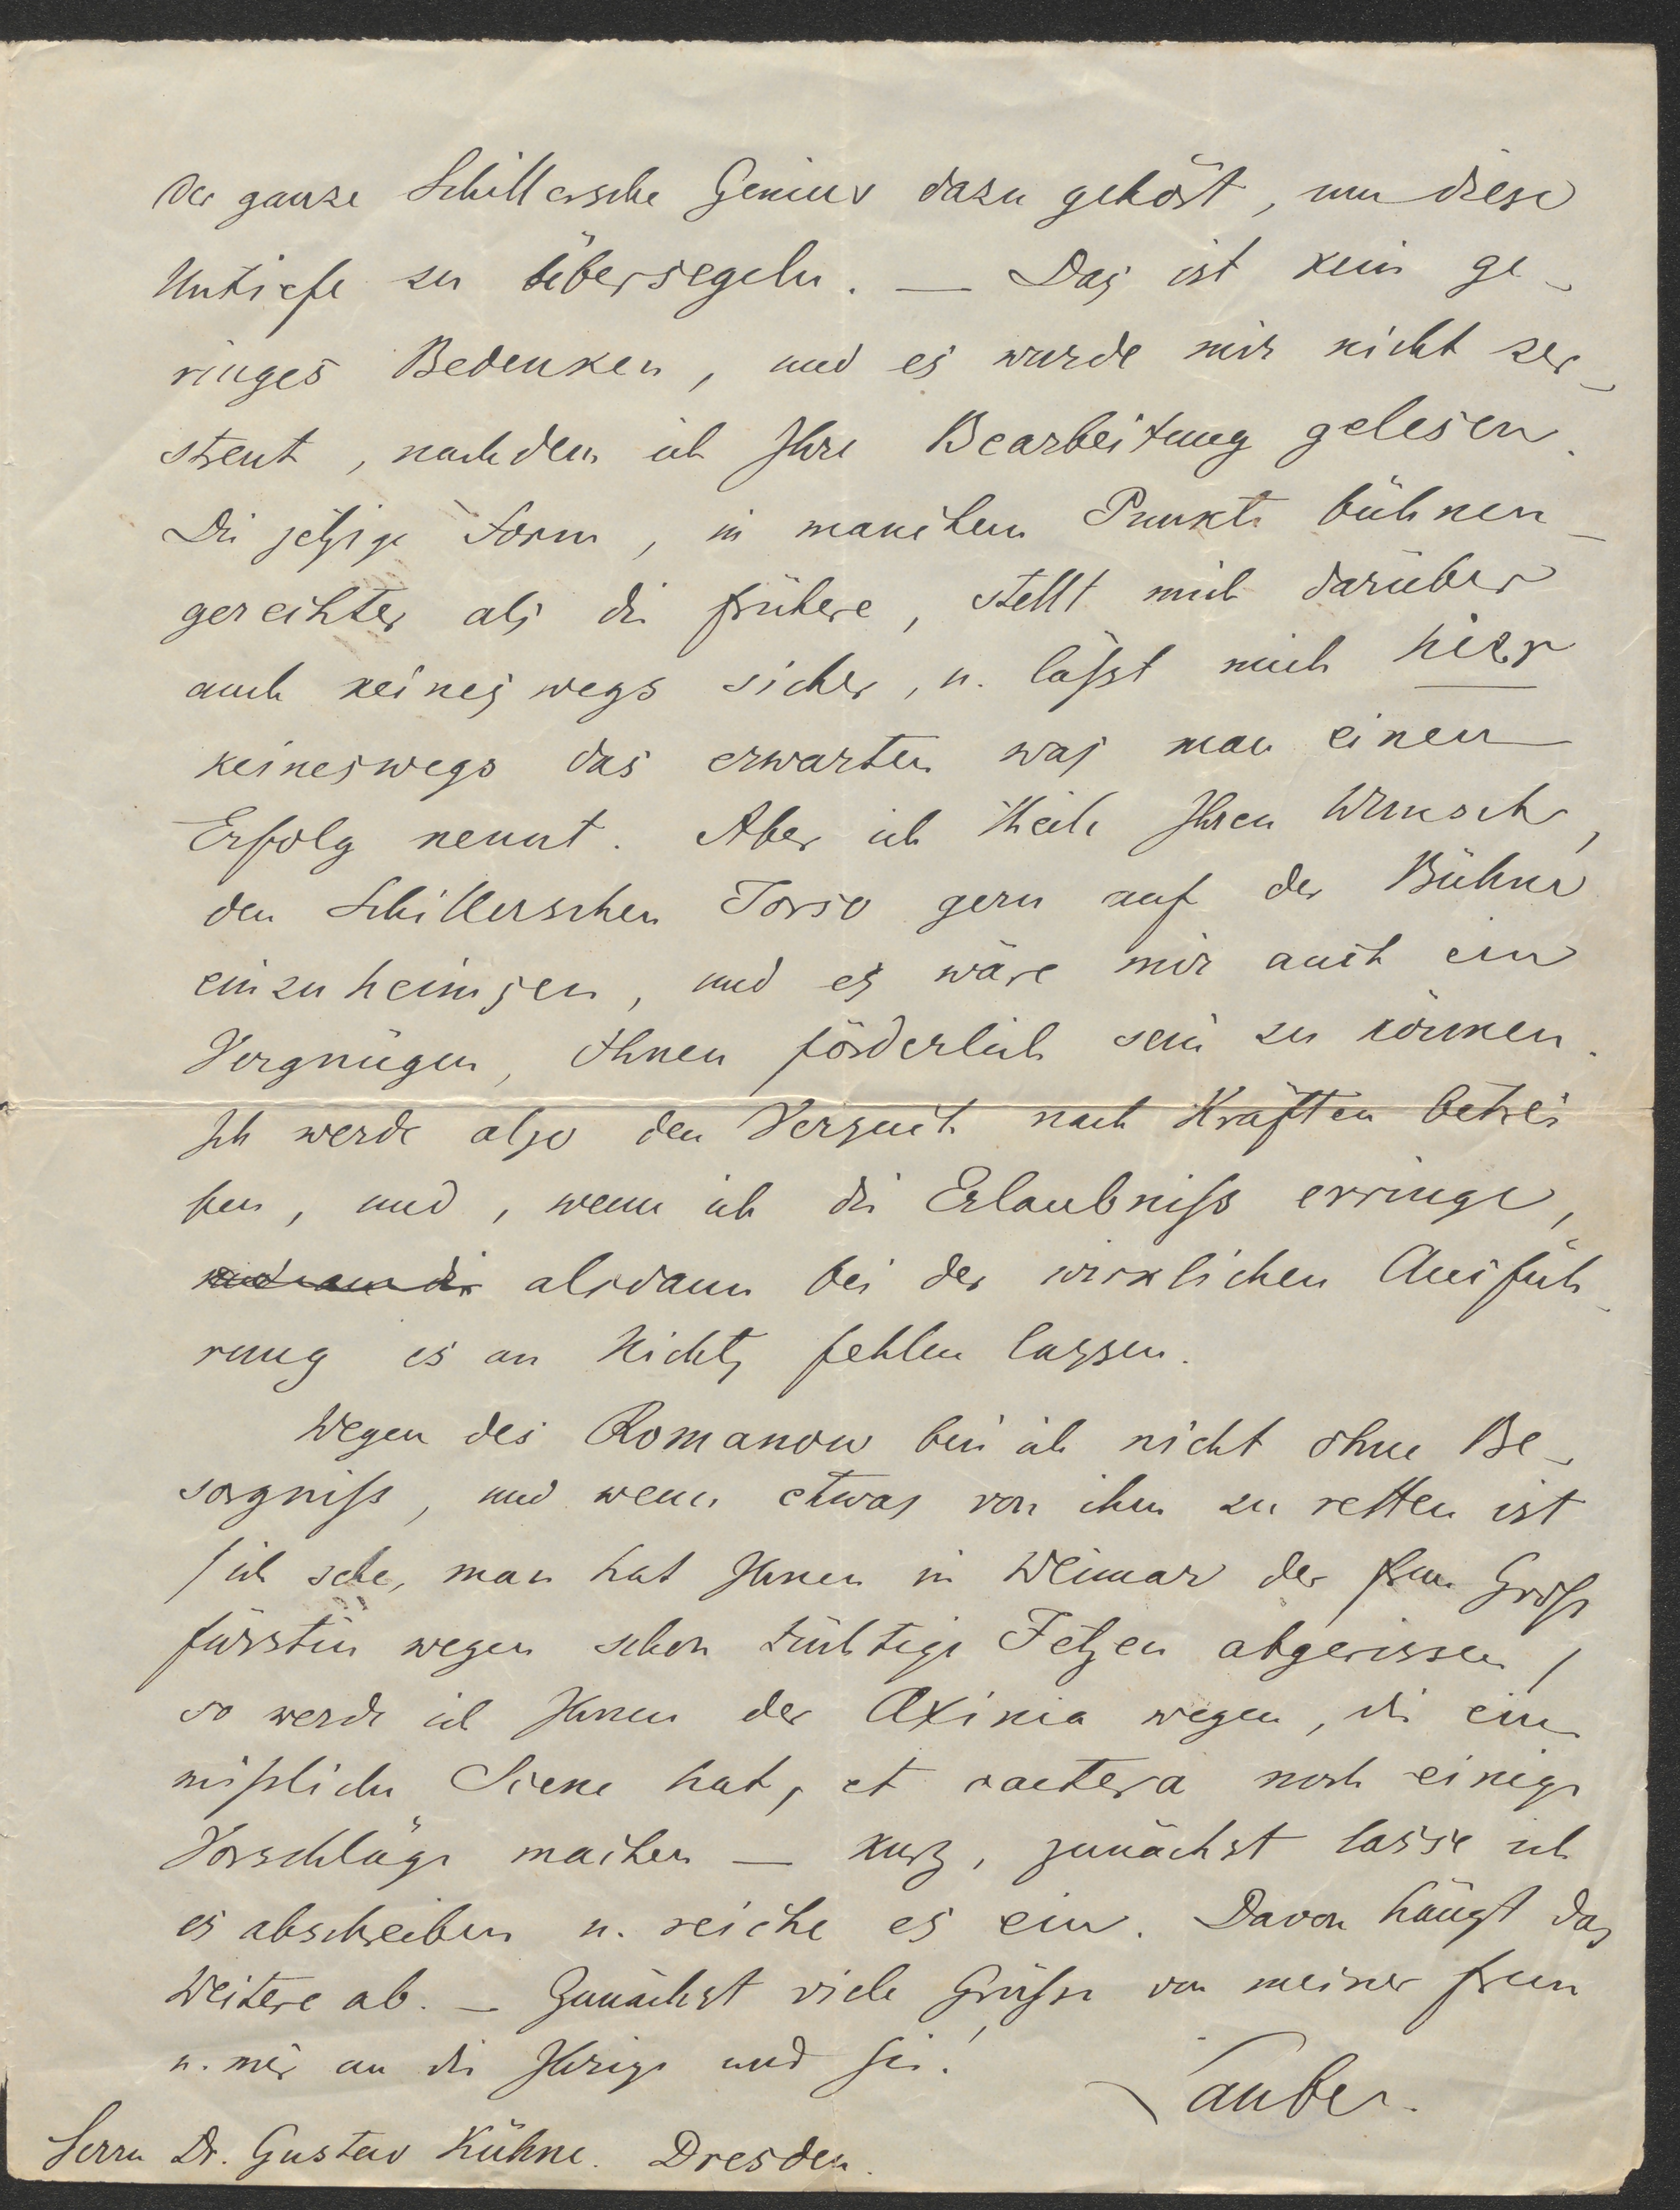 der ganze Schillersche Genius dazu gehört, um diese
Untiefe zu übersegeln. — Das ist kein ge-
ringes Bedenken, und es wurde mir nicht zer-
streut, nachdem ich Ihre Bearbeitung gelesen.
Die jetzige Form, in manchem Punkte bühnen-
gerechter als die frühere, stellt mich darüber
auch keineswegs sicher, u. läßt mich hier
keineswegs das erwarten was man einen
Erfolg nennt. Aber ich theile Ihren Wunsch,
den Schillerschen Torso gern auf der Bühne
einzuheimsen, und es wäre mir auch ein
Vergnügen, Ihnen förderlich sein zu können.
Ich werde also den Versuch nach Kräften betrei
ben, und, wenn ich die Erlaubniß erringe,
alsdann bei der wirklichen Ausfüh-
rung es an Nichts fehlen lassen.
Wegen des Romanow bin ich nicht ohne Be-
sorgniß, und wenn etwas von ihm zu retten ist
/ich sehe, man hat Ihnen in Weimar der Groß
fürstin wegen schon tüchtige Fetzen abgerissen/
so werde ich Ihnen der Axinia wegen, die eine
mißliche Scene hat, et caetera noch einige
Vorschläge machen — kurz, zunächst lasse ich
es abschreiben u. reiche es ein. Davon hängt das
Weitere ab. — Zunächst viele Grüße von meiner Frau
u. mir an die Ihrige und Sie!
Laube.
Herrn Dr. Gustav Kühne. Dresden.